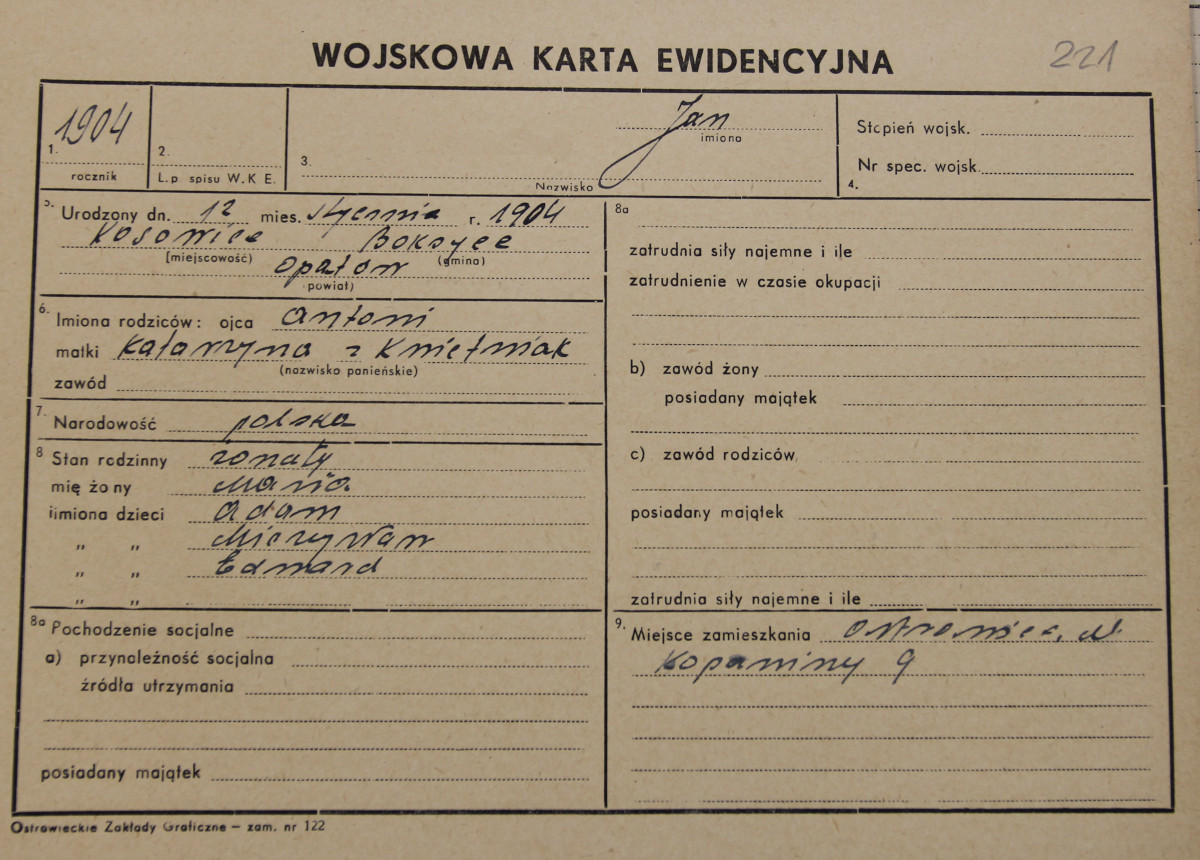 WOJSKOWA KARTA EWIDENCYJNA
221
1904
1.
rocznik
2.
L.p spisu W.K E.
Jan
imiona
3.
Nazwisko
Stopień wojsk.
Nr spec. wojsk.
4.
Urodzony dn. 12 mies. stycznia r. 1904
Kosowice Boksyce
(miejscowość) (gmina)
Opatów
powiat)
6. Imiona rodziców: ojca Antoni
matki Katarzyna z Kwietniak
(nazwisko panieńskie)
zawód
7. Narodowość polska
8 Stan rodzinny żonaty
mię żony Maria
imiona dzieci Adam
„ „ Mieczysław
„ „ Edward
„ „
8a Pochodzenie socjalne
a) przynależność socjalna
źródła utrzymania
posiadany majątek
8a
zatrudnia siły najemne i ile
zatrudnienie w czasie okupacji
b) zawód żony
posiadany majątek
c) zawód rodziców
posiadany majątek
zatrudnia siły najemne i ile
9. Miejsce zamieszkania Ostrowiec, ul.
Kopaniny 9
Ostrowieckie Zakłady Graficzne — zam. nr 122